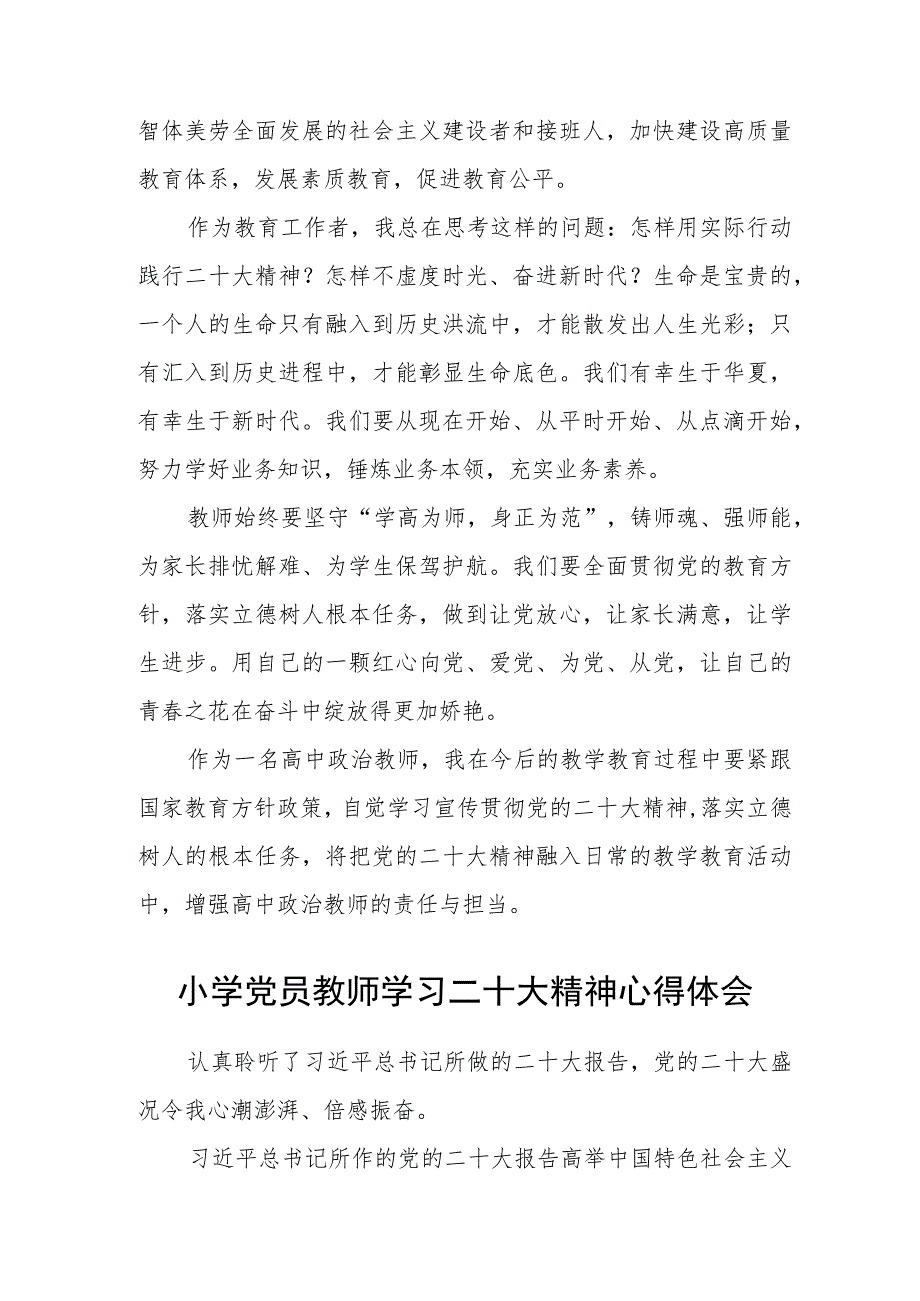 智体美劳全面发展的社会主义建设者和接班人，加快建设高质量
教育体系，发展素质教育，促进教育公平。
作为教育工作者，我总在思考这样的问题：怎样用实际行动
践行二十大精神？怎样不虚度时光、奋进新时代？生命是宝贵的，
一个人的生命只有融入到历史洪流中，才能散发出人生光彩；只
有汇入到历史进程中，才能彰显生命底色。我们有幸生于华夏，
有幸生于新时代。我们要从现在开始、从平时开始、从点滴开始，
努力学好业务知识，锤炼业务本领，充实业务素养。
教师始终要坚守“学高为师，身正为范”，铸师魂、强师能，
为家长排忧解难、为学生保驾护航。我们要全面贯彻党的教育方
针，落实立德树人根本任务，做到让党放心，让家长满意，让学
生进步。用自己的一颗红心向党、爱党、为党、从党，让自己的
青春之花在奋斗中绽放得更加娇艳。
作为一名高中政治教师，我在今后的教学教育过程中要紧跟
国家教育方针政策，自觉学习宣传贯彻党的二十大精神,落实立德
树人的根本任务，将把党的二十大精神融入日常的教学教育活动
中，增强高中政治教师的责任与担当。
小学党员教师学习二十大精神心得体会
认真聆听了习近平总书记所做的二十大报告，党的二十大盛
况令我心潮澎湃、倍感振奋。
习近平总书记所作的党的二十大报告高举中国特色社会主义